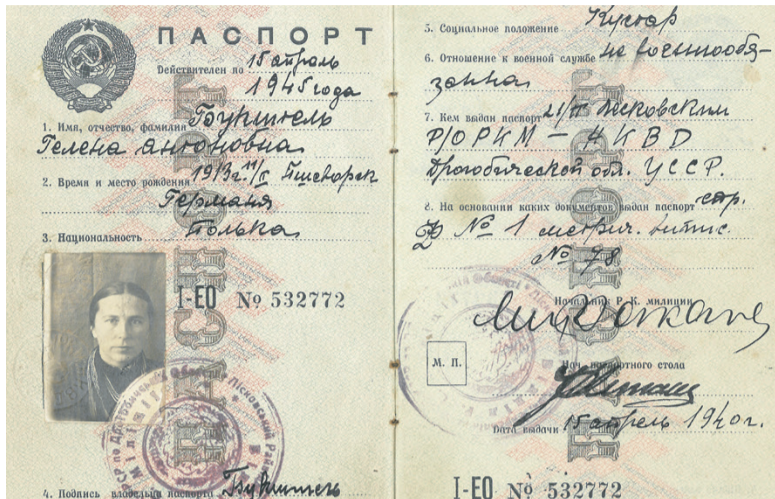 ПАСПОРТ
Действителен по 15 апрель
1945 года
1. Имя, отчество, фамилия Букштель
Гелена Антоновна
2. Время и место рождения 1913 г. 11/I Пшеворск
Германя
3. Национальность Полька
I-ЕО № 532772
4. Подпись владельца паспорта Букштель
5. Социальное положение Кустар
6. Отношение к военной службе не военнообя-
занная
7. Кем выдан паспорт 21/II Лесковским
Р/О РКМ — НКВД
Дрогобической обл. УССР.
8. На основании каких документов выдан паспорт стр.
№ 1 метрич. выпис.
№ 78
Начальник Р. К. милиции
М. П.
Нач. паспортного стола
Дата выдачи 15 апрель 1940 г.
I-ЕО № 532772